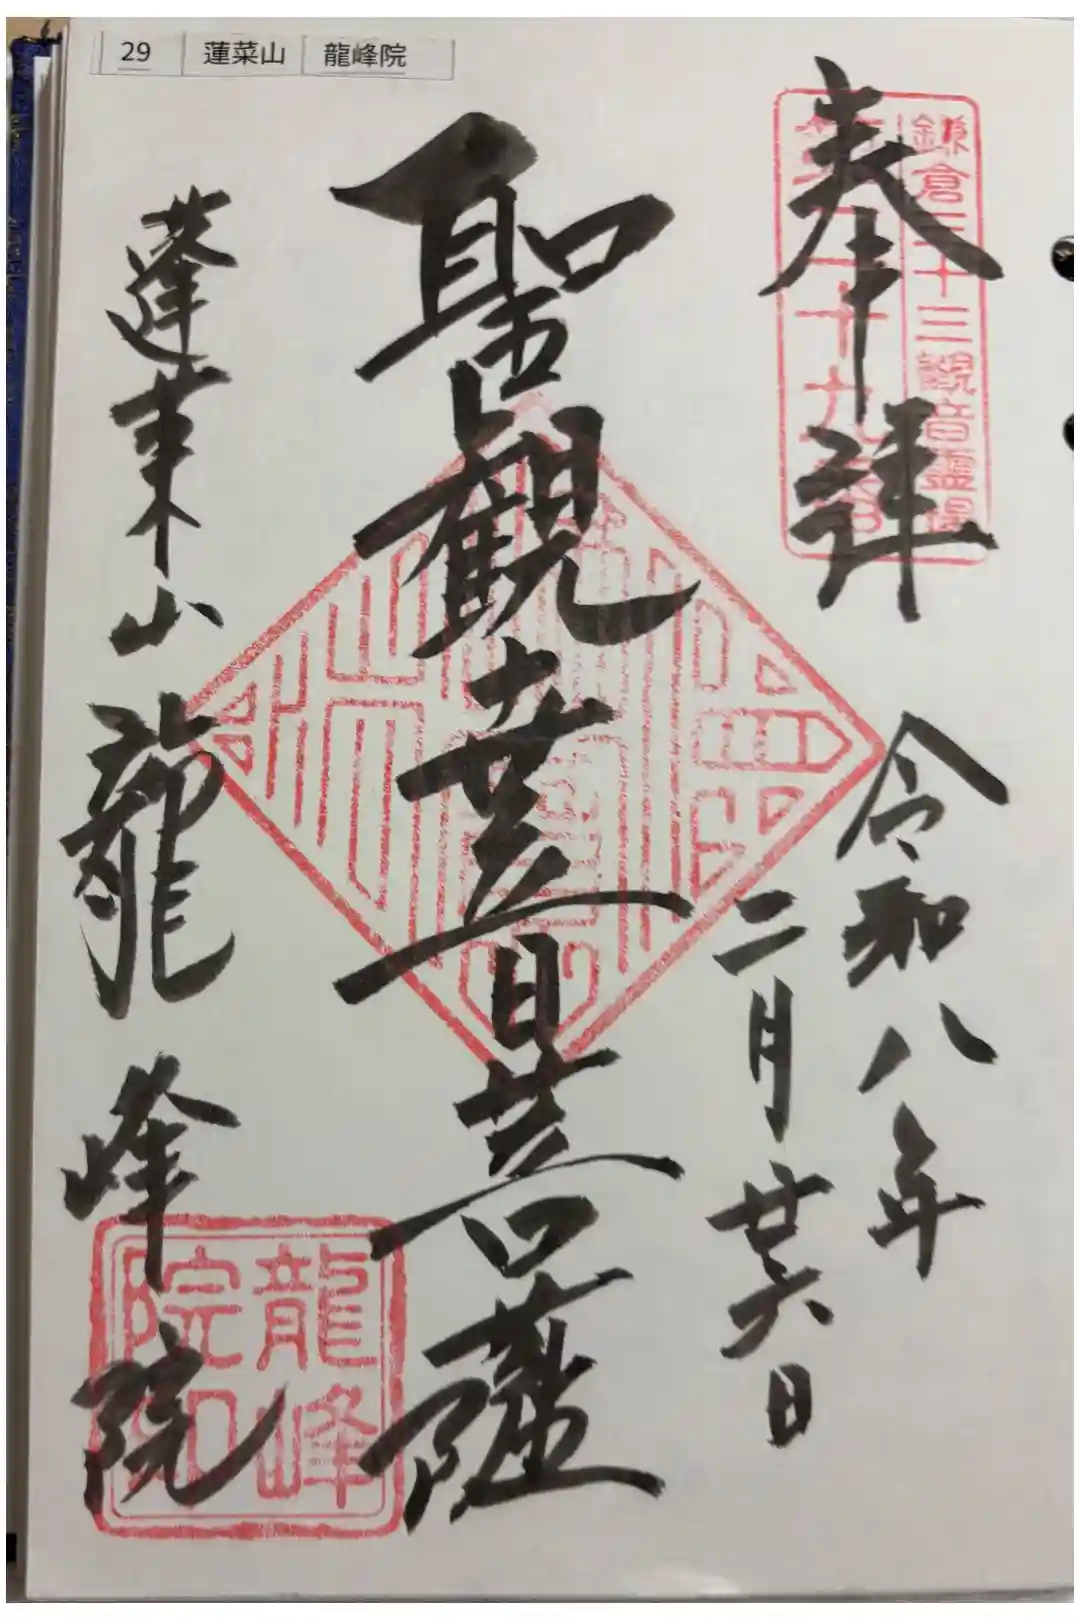 29 蓮菜山 龍峰院
奉拝
鎌倉三十三観音霊場
第二十九番
令和八年
二月廿六日
聖観世音菩薩
蓬莱山 龍峰院
龍峰院印